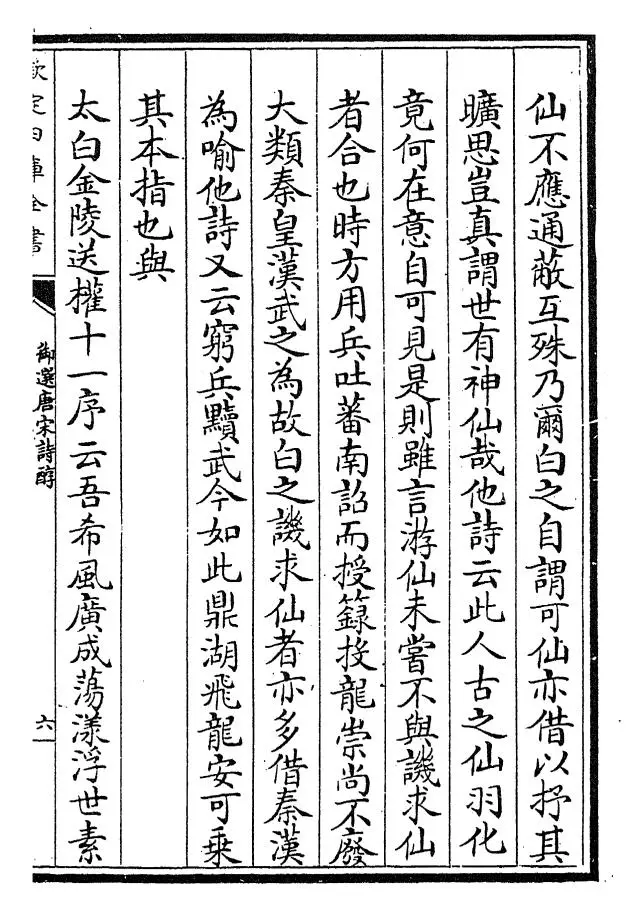 仙不應通蔽互殊乃爾白之自謂可仙亦借以抒其
曠思豈真謂世有神仙哉他詩云此人古之仙羽化
竟何在意自可見是則雖言游仙未嘗不與譏求仙
者合也時方用兵吐蕃南詔而授籙投龍崇尚不廢
大類秦皇漢武之為故白之譏求仙者亦多借秦漢
為喻他詩又云窮兵黷武今如此鼎湖飛龍安可乗
其本指也與
太白金陵送權十一序云吾希風廣成蕩漾浮世素
欽定四庫全書
御選唐宋詩醇
六